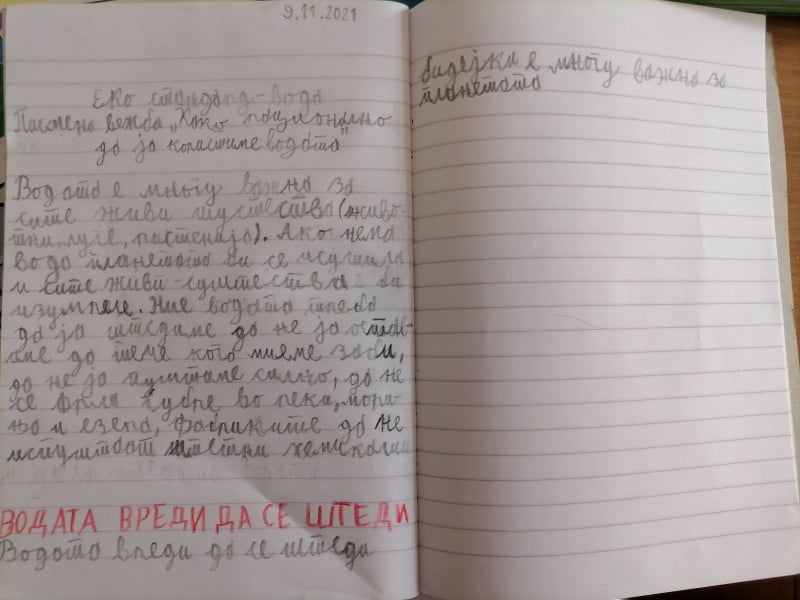 9.11.2021
Еко стандард-вода
Писмена вежба „Како рационално
да ја користиме водата"
Водата е многу важна за
сите живи суштества (живо-
тни, луѓе, растенија). Ако нема
вода планетата би се исушила
и сите живи суштества би
изумреле. Ние водата треба
да ја штедиме да не ја остав-
аме да тече кога миеме заби,
да не ја пуштаме силно, да не
се фрла ѓубре во реки, мори-
ња и езера, фабриките да не
испуштаат штетни хемикалии
ВОДАТА ВРЕДИ ДА СЕ ШТЕДИ
Водата вреди да се штеди
бидејки е многу важна за
планетата